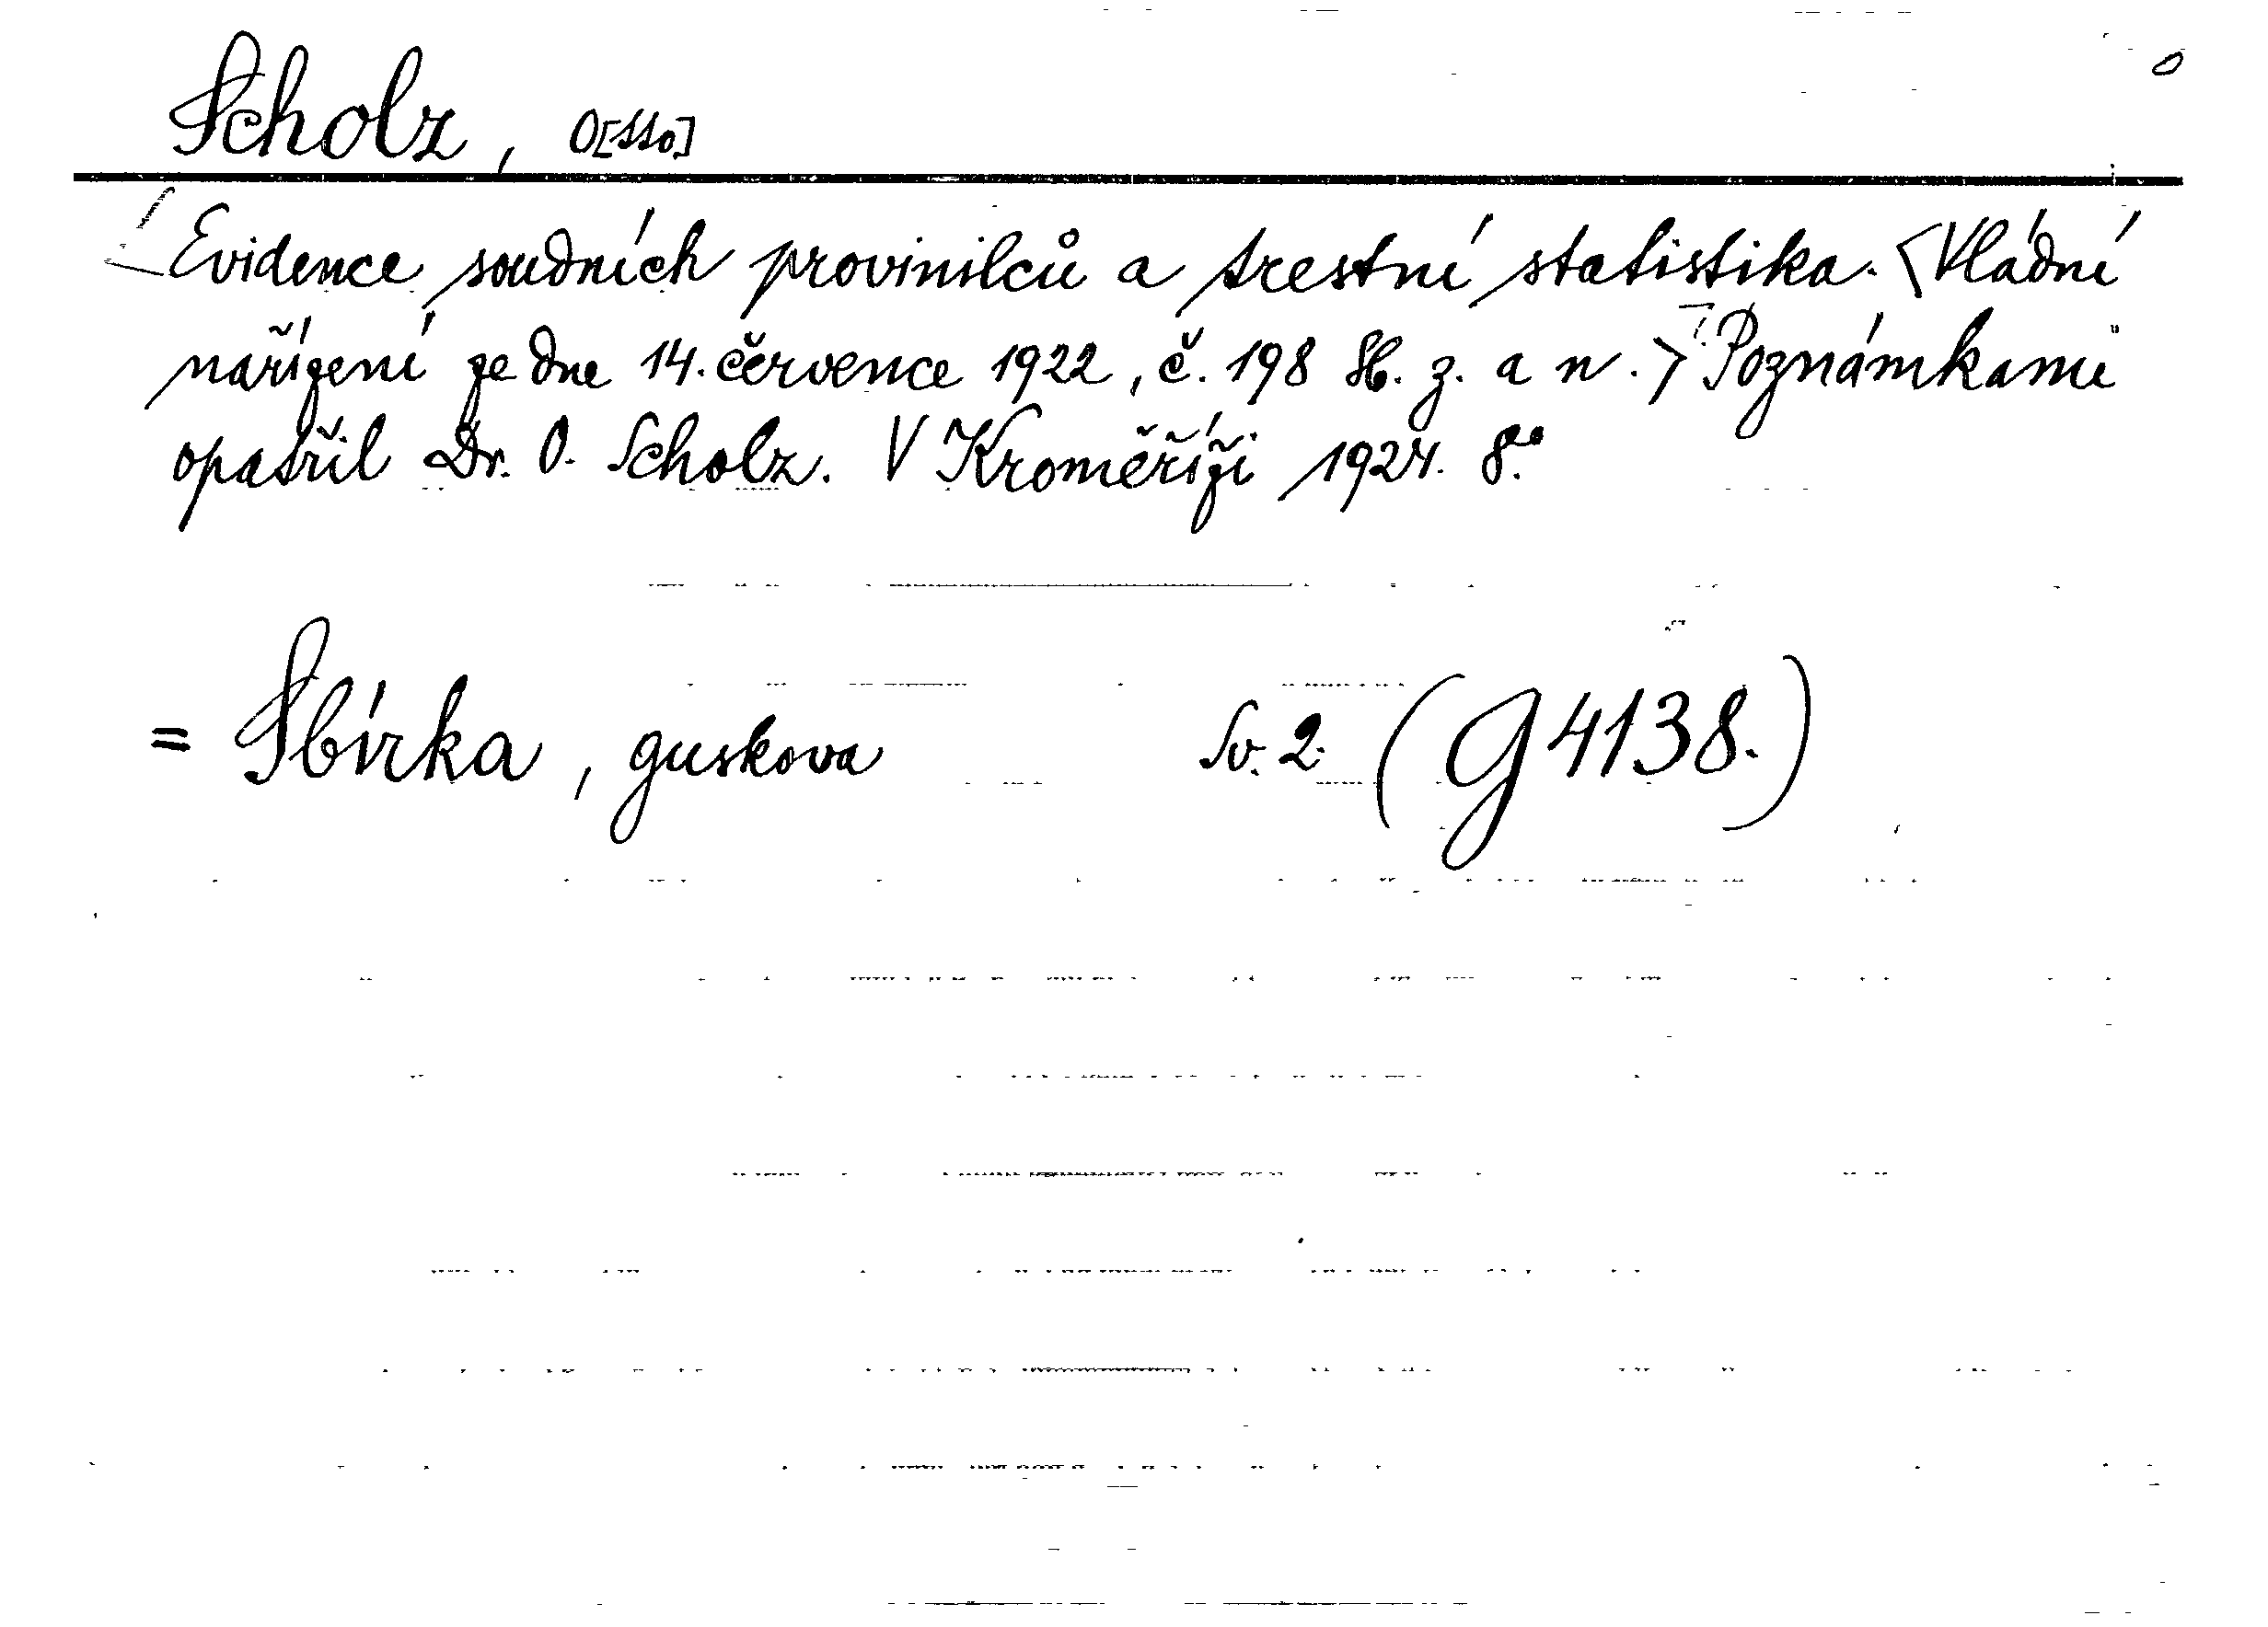 Scholz, O[tto]
Evidence soudních provinilců a trestní statistika. <Vládní
nařízení ze dne 14. července 1922, č. 198 Sb. z. a n.> Poznámkami
opatřil Dr. O. Scholz. V Kroměříži 1924. 8.°
= Sbírka, guskova Sv. 2. (G 4138.)